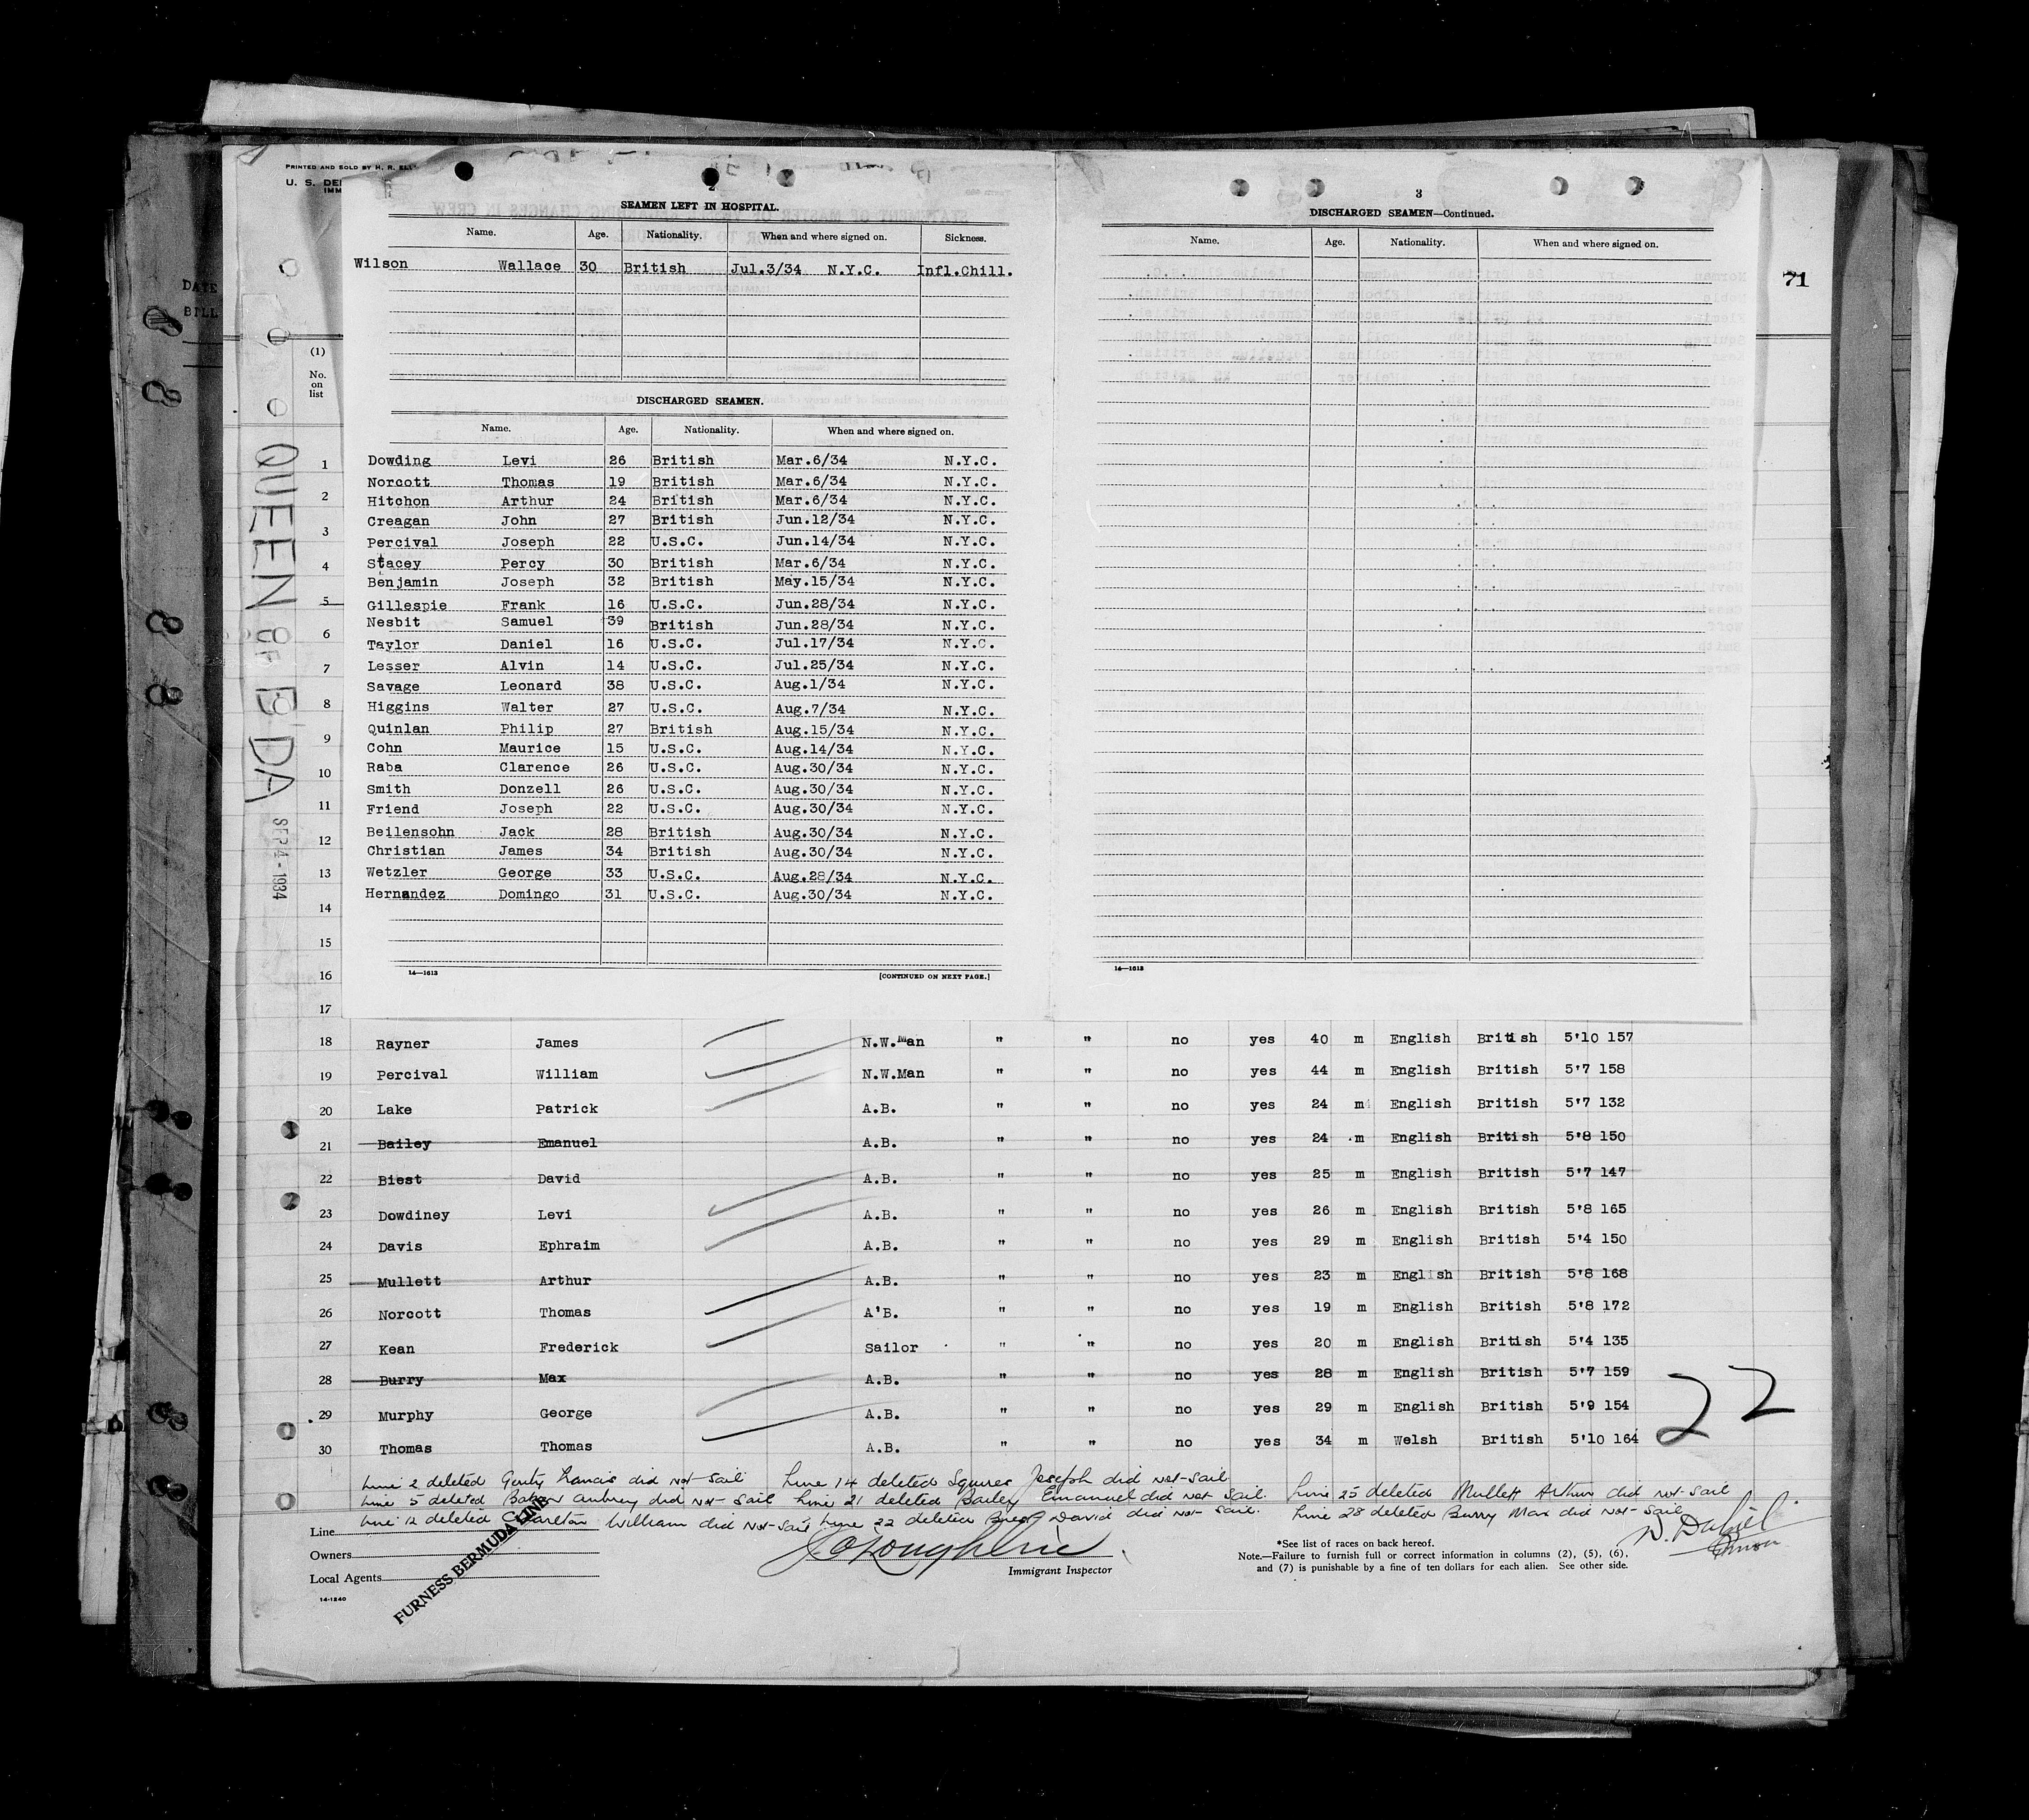 PRINTED AND SOLD BY H. R.
U. S. DE
IMM
DATE
BILL
71
2
SEAMEN LEFT IN HOSPITAL.
Name. Age. Nationality. When and where signed on. Sickness.
Wilson Wallace 30 British Jul.3/34 N.Y.C. Infl.Chill.
DISCHARGED SEAMEN.
Name. Age. Nationality. When and where signed on.
Dowding Levi 26 British Mar.6/34 N.Y.C.
Norcott Thomas 19 British Mar.6/34 N.Y.C.
Hitchon Arthur 24 British Mar.6/34 N.Y.C.
Creagan John 27 British Jun.12/34 N.Y.C.
Percival Joseph 22 U.S.C. Jun.14/34 N.Y.C.
Stacey Percy 30 British Mar.6/34 N.Y.C.
Benjamin Joseph 32 British May.15/34 N.Y.C.
Gillespie Frank 16 U.S.C. Jun.28/34 N.Y.C.
Nesbit Samuel 39 British Jun.28/34 N.Y.C.
Taylor Daniel 16 U.S.C. Jul.17/34 N.Y.C.
Lesser Alvin 14 U.S.C. Jul.25/34 N.Y.C.
Savage Leonard 38 U.S.C. Aug.1/34 N.Y.C.
Higgins Walter 27 U.S.C. Aug.7/34 N.Y.C.
Quinlan Philip 27 British Aug.15/34 N.Y.C.
Cohn Maurice 15 U.S.C. Aug.14/34 N.Y.C.
Raba Clarence 26 U.S.C. Aug.30/34 N.Y.C.
Smith Donzell 26 U.S.C. Aug.30/34 N.Y.C.
Friend Joseph 22 U.S.C. Aug.30/34 N.Y.C.
Beilensohn Jack 28 British Aug.30/34 N.Y.C.
Christian James 34 British Aug.30/34 N.Y.C.
Wetzler George 33 U.S.C. Aug.28/34 N.Y.C.
Hernandez Domingo 31 U.S.C. Aug.30/34 N.Y.C.
14—1613 [CONTINUED ON NEXT PAGE.]
3
DISCHARGED SEAMEN—Continued.
Name. Age. Nationality. When and where signed on.
14—1613
QUEEN OF B'DA SEP 4 - 1934
(1)
No.
on
list
1
2
3
4
5
6
7
8
9
10
11
12
13
14
15
16
17
18 Rayner James N.W.Man " " no yes 40 m English British 5'10 157
19 Percival William N.W.Man " " no yes 44 m English British 5'7 158
20 Lake Patrick A.B. " " no yes 24 m English British 5'7 132
21 Bailey Emanuel A.B. " " no yes 24 m English British 5'8 150
22 Biest David A.B. " " no yes 25 m English British 5'7 147
23 Dowdiney Levi A.B. " " no yes 26 m English British 5'8 165
24 Davis Ephraim A.B. " " no yes 29 m English British 5'4 150
25 Mullett Arthur A.B. " " no yes 23 m English British 5'8 168
26 Norcott Thomas A'B. " " no yes 19 m English British 5'8 172
27 Kean Frederick Sailor " " no yes 20 m English British 5'4 135
28 Burry Max A.B. " " no yes 28 m English British 5'7 159
29 Murphy George A.B. " " no yes 29 m English British 5'9 154
30 Thomas Thomas A.B. " " no yes 34 m Welsh British 5'10 164
22
Line 2 deleted Francis did not sail Line 14 deleted Squires Joseph did not sail
Line 5 deleted Baker Aubrey did not sail Line 21 deleted Bailey Emanuel did not sail. Line 25 deleted Mullett Arthur did not sail
Line 12 deleted Charlton William did not sail Line 22 deleted Biest David did not sail. Line 28 deleted Burry Max did not sail
Line
Owners
Local Agents
14-1240
FURNESS BERMUDA LINE
Immigrant Inspector
*See list of races on back hereof.
Note.—Failure to furnish full or correct information in columns (2), (5), (6),
and (7) is punishable by a fine of ten dollars for each alien. See other side.